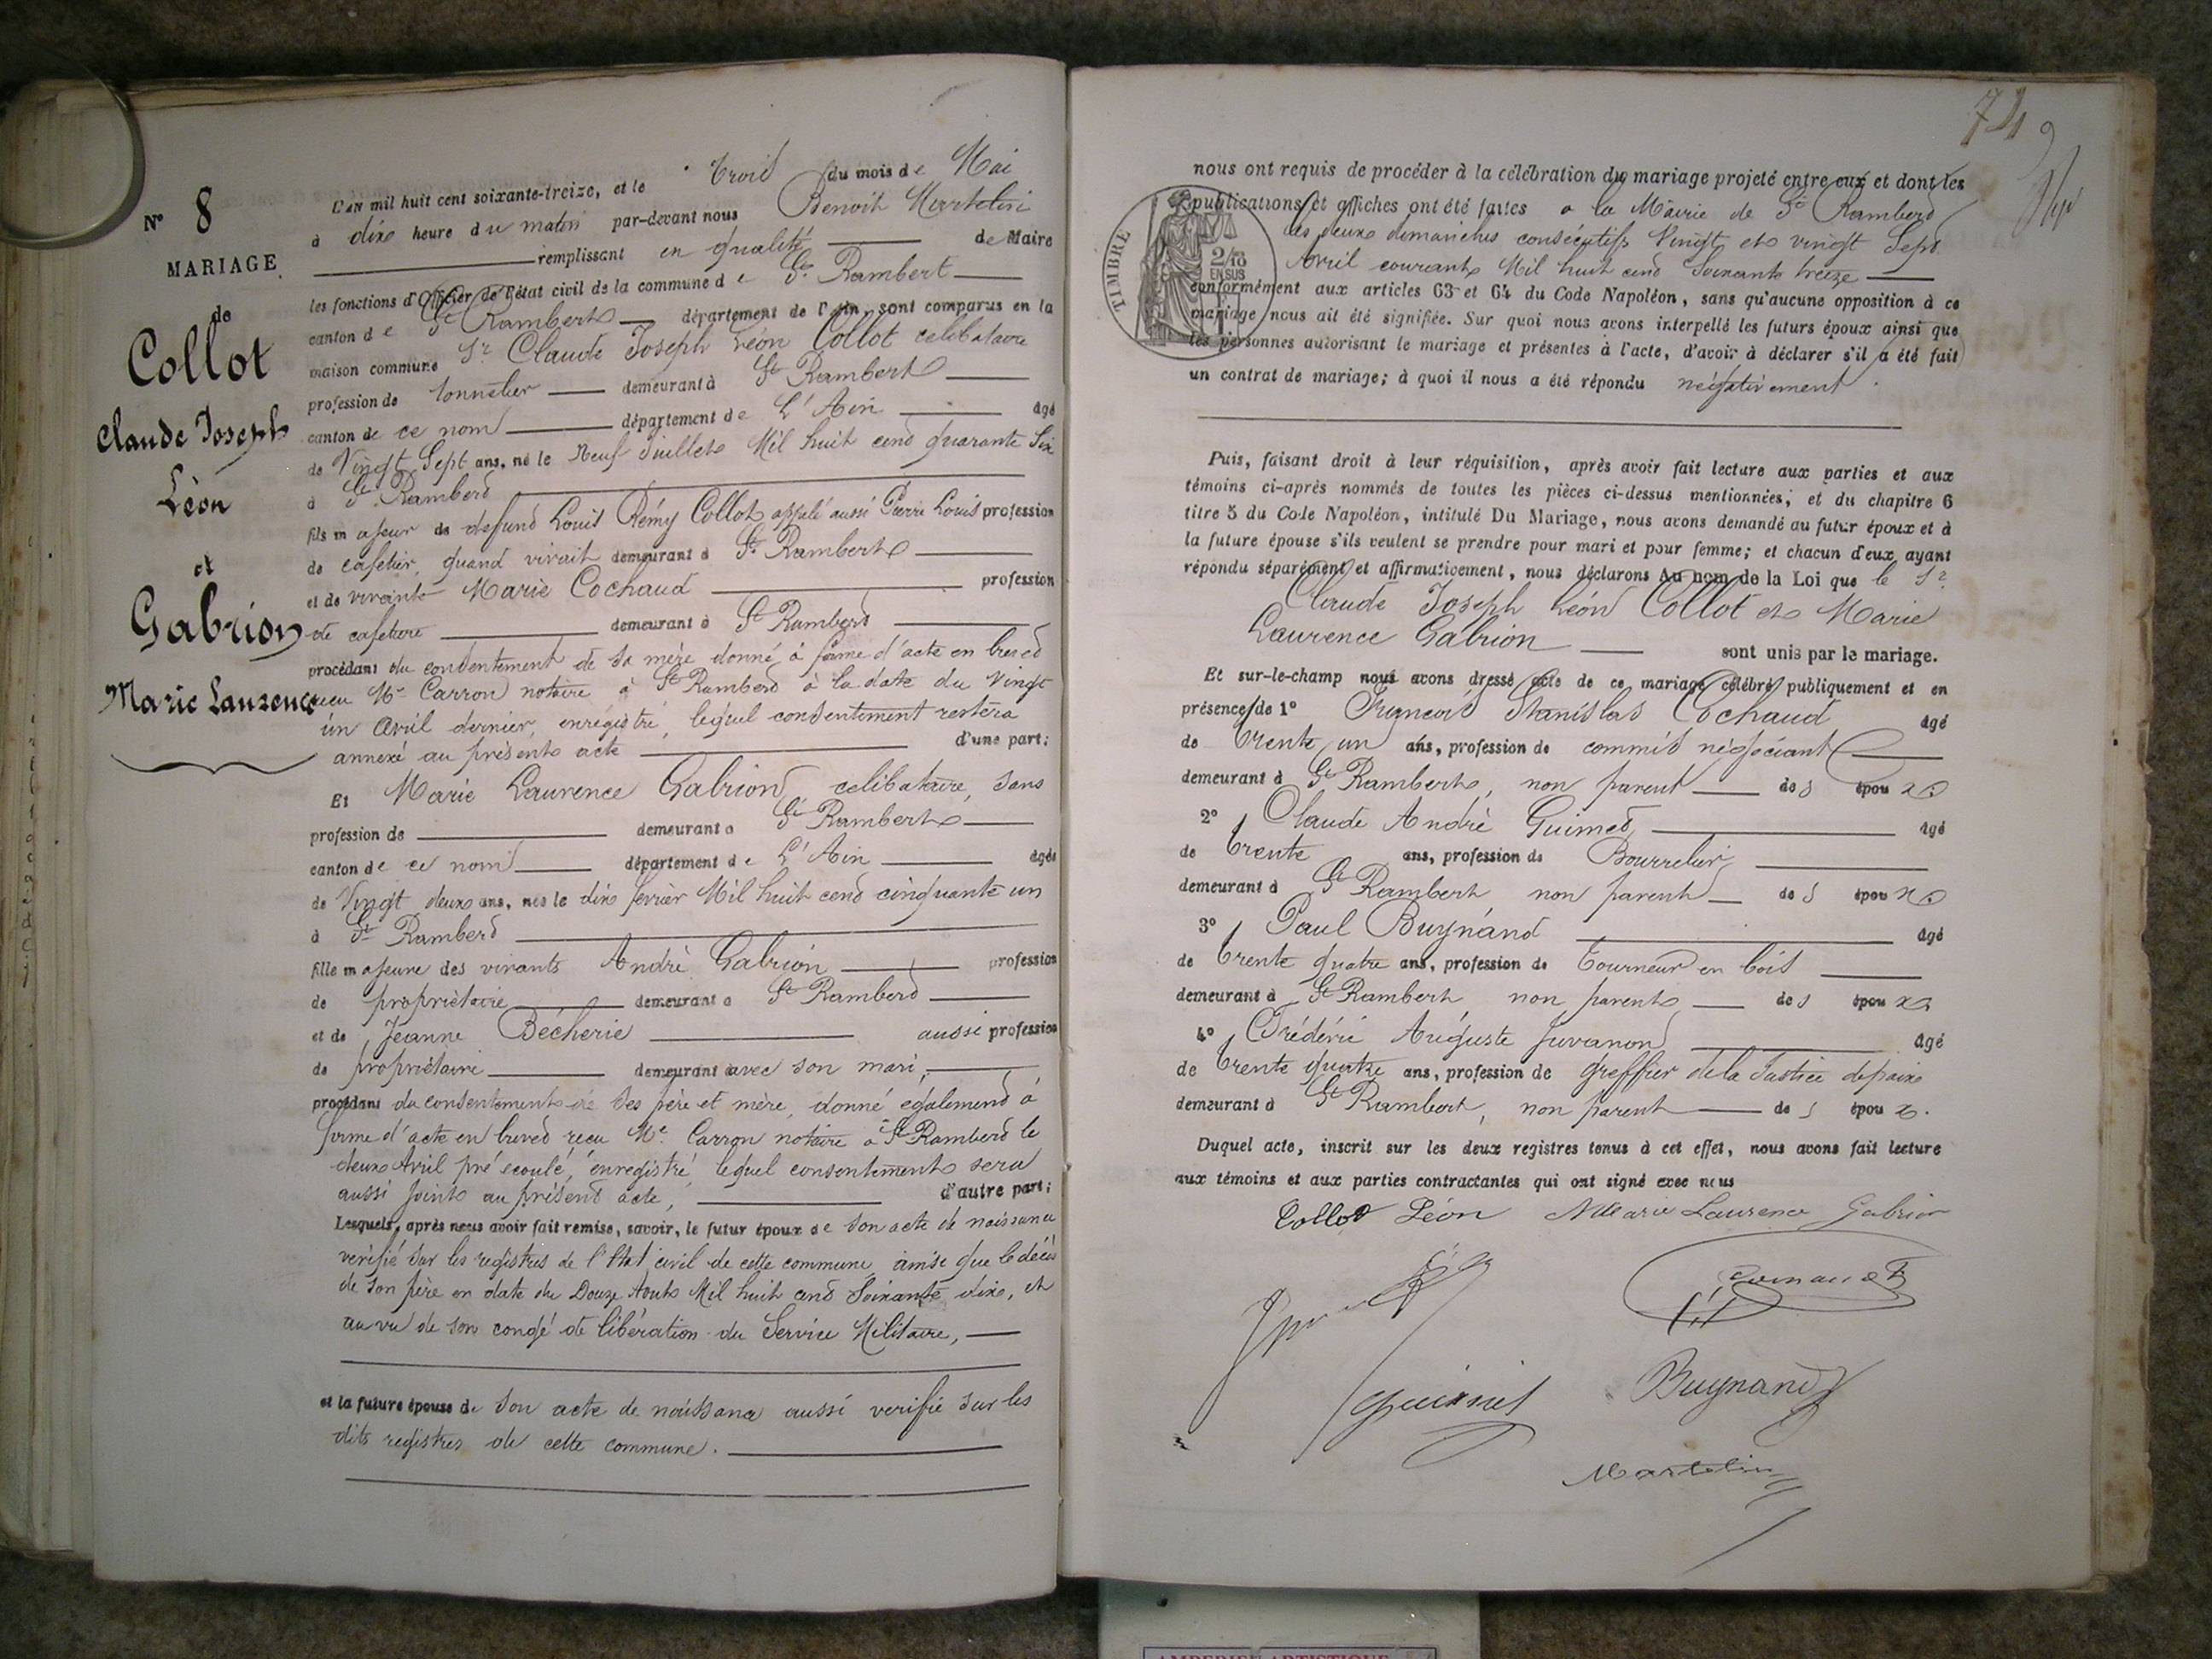 N° 8
MARIAGE
de
Collot
Claude Joseph
Léon
et
Gabrion
Marie Laurence
L'an mil huit cent soixante-treize, et le trois du mois de Mai
à dix heure du matin par-devant nous Benoit Martelin
remplissant en qualité de Maire
les fonctions d'Officier de l'état civil de la commune de St Rambert
canton de St Rambert département de l'Ain, sont comparus en la
maison commune Sr Claude Joseph Léon Collot celibataire
profession de tonnelier demeurant à St Rambert
canton de ce nom département de L'Ain âgé
de Vingt Sept ans, né le Neuf Juillet Mil huit cent quarante Six
à St Rambert
fils majeur de defunt Louis Rémy Collot appelé aussi Pierre Louis profession
de cafetier, quand vivait demeurant à St Rambert
et de vivante Marie Cochaud profession
de cafetière demeurant à St Rambert
procédant du consentement de sa mère donné à forme d'acte en brevet
reçu Me Carron notaire à St Rambert à la date du Vingt
un Avril dernier, enregistré, lequel consentement restera
annexé au présent acte d'une part;
Et Marie Laurence Gabrion, celibataire, sans
profession de demeurant à St Rambert
canton de ce nom département de L'Ain âgée
de Vingt deux ans, née le dix fevrier Mil huit cent cinquante un
à St Rambert
fille majeure des vivants André Gabrion profession
de propriètaire demeurant à St Rambert
et de Jeanne Bécherie aussi profession
de propriètaire demeurant avec son mari,
procédant du consentement de ses père et mère, donné également à
forme d'acte en brevet reçu Me Carron notaire à St Rambert le
deux Avril pré ecoulé, enregistré lequel consentement sera
aussi joint au présent acte, d'autre part;
Lesquels, après nous avoir fait remise, savoir, le futur époux de son acte de naissance
verifié sur les registres de l'Etat civil de cette commune, ainsi que le décès
de son père en date du Douze Aout Mil huit cent Soixante dix, et
au vu de son congé de libération du Service Militaire,
et la future épouse de son acte de naissance aussi verifié sur les
dits registres de cette commune.
74
nous ont requis de procéder à la célébration du mariage projeté entre eux et dont les
publications et affiches ont été faites a la Mairie de St Rambert
les deux dimanches consécutifs Vingt et vingt Sept
Avril courant Mil huit cent Soixante treize
TIMBRE
2/10
EN SUS
conformément aux articles 63 et 64 du Code Napoléon, sans qu'aucune opposition à ce
mariage nous ait été signifiée. Sur quoi nous avons interpellé les futurs époux ainsi que
les personnes autorisant le mariage et présentes à l'acte, d'avoir à déclarer s'il a été fait
un contrat de mariage; à quoi il nous a été répondu négativement.
Puis, faisant droit à leur réquisition, après avoir fait lecture aux parties et aux
témoins ci-après nommés de toutes les pièces ci-dessus mentionnées, et du chapitre 6
titre 5 du Code Napoléon, intitulé Du Mariage, nous avons demandé au futur époux et à
la future épouse s'ils veulent se prendre pour mari et pour femme; et chacun d'eux ayant
répondu séparément et affirmativement, nous déclarons Au nom de la Loi que le Sr
Claude Joseph Léon Collot et Marie
Laurence Gabrion sont unis par le mariage.
Et sur-le-champ nous avons dressé acte de ce mariage célébré publiquement et en
présence de 1° François Stanislas Cochaud âgé
de trente un ans, profession de commis négociant
demeurant à St Rambert, non parent des époux
2° Claude André Guimet âgé
de trente ans, profession de Bourrelier
demeurant à St Rambert non parent des époux
3° Paul Buynand âgé
de trente quatre ans, profession de tourneur en bois
demeurant à St Rambert non parent des époux
4° Frédéric Auguste Juvanon âgé
de trente quatre ans, profession de greffier de la Justice de paix
demeurant à St Rambert, non parent des époux.
Duquel acte, inscrit sur les deux registres tenus à cet effet, nous avons fait lecture
aux témoins et aux parties contractantes qui ont signé avec nous
Collot Léon Marie Laurence Gabrion
Guimet
Buynand
Martelin